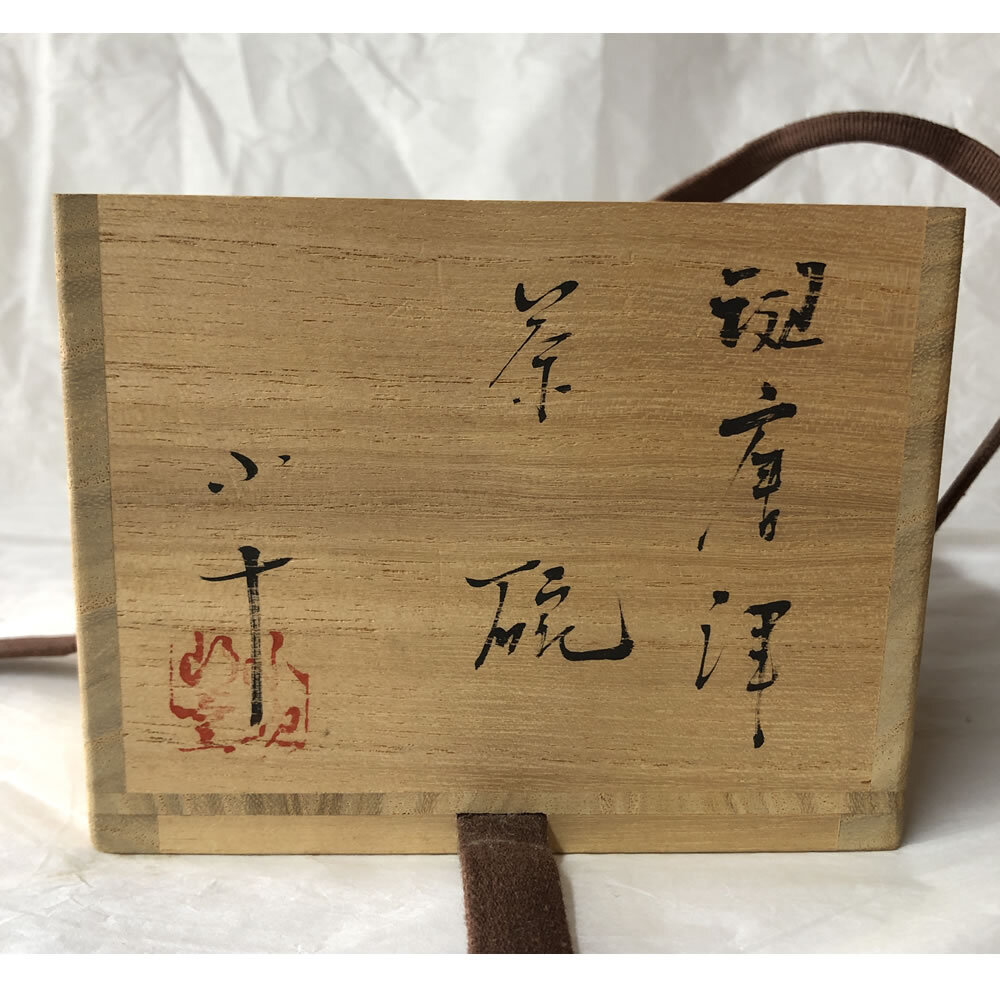 斑唐津
茶碗
小十